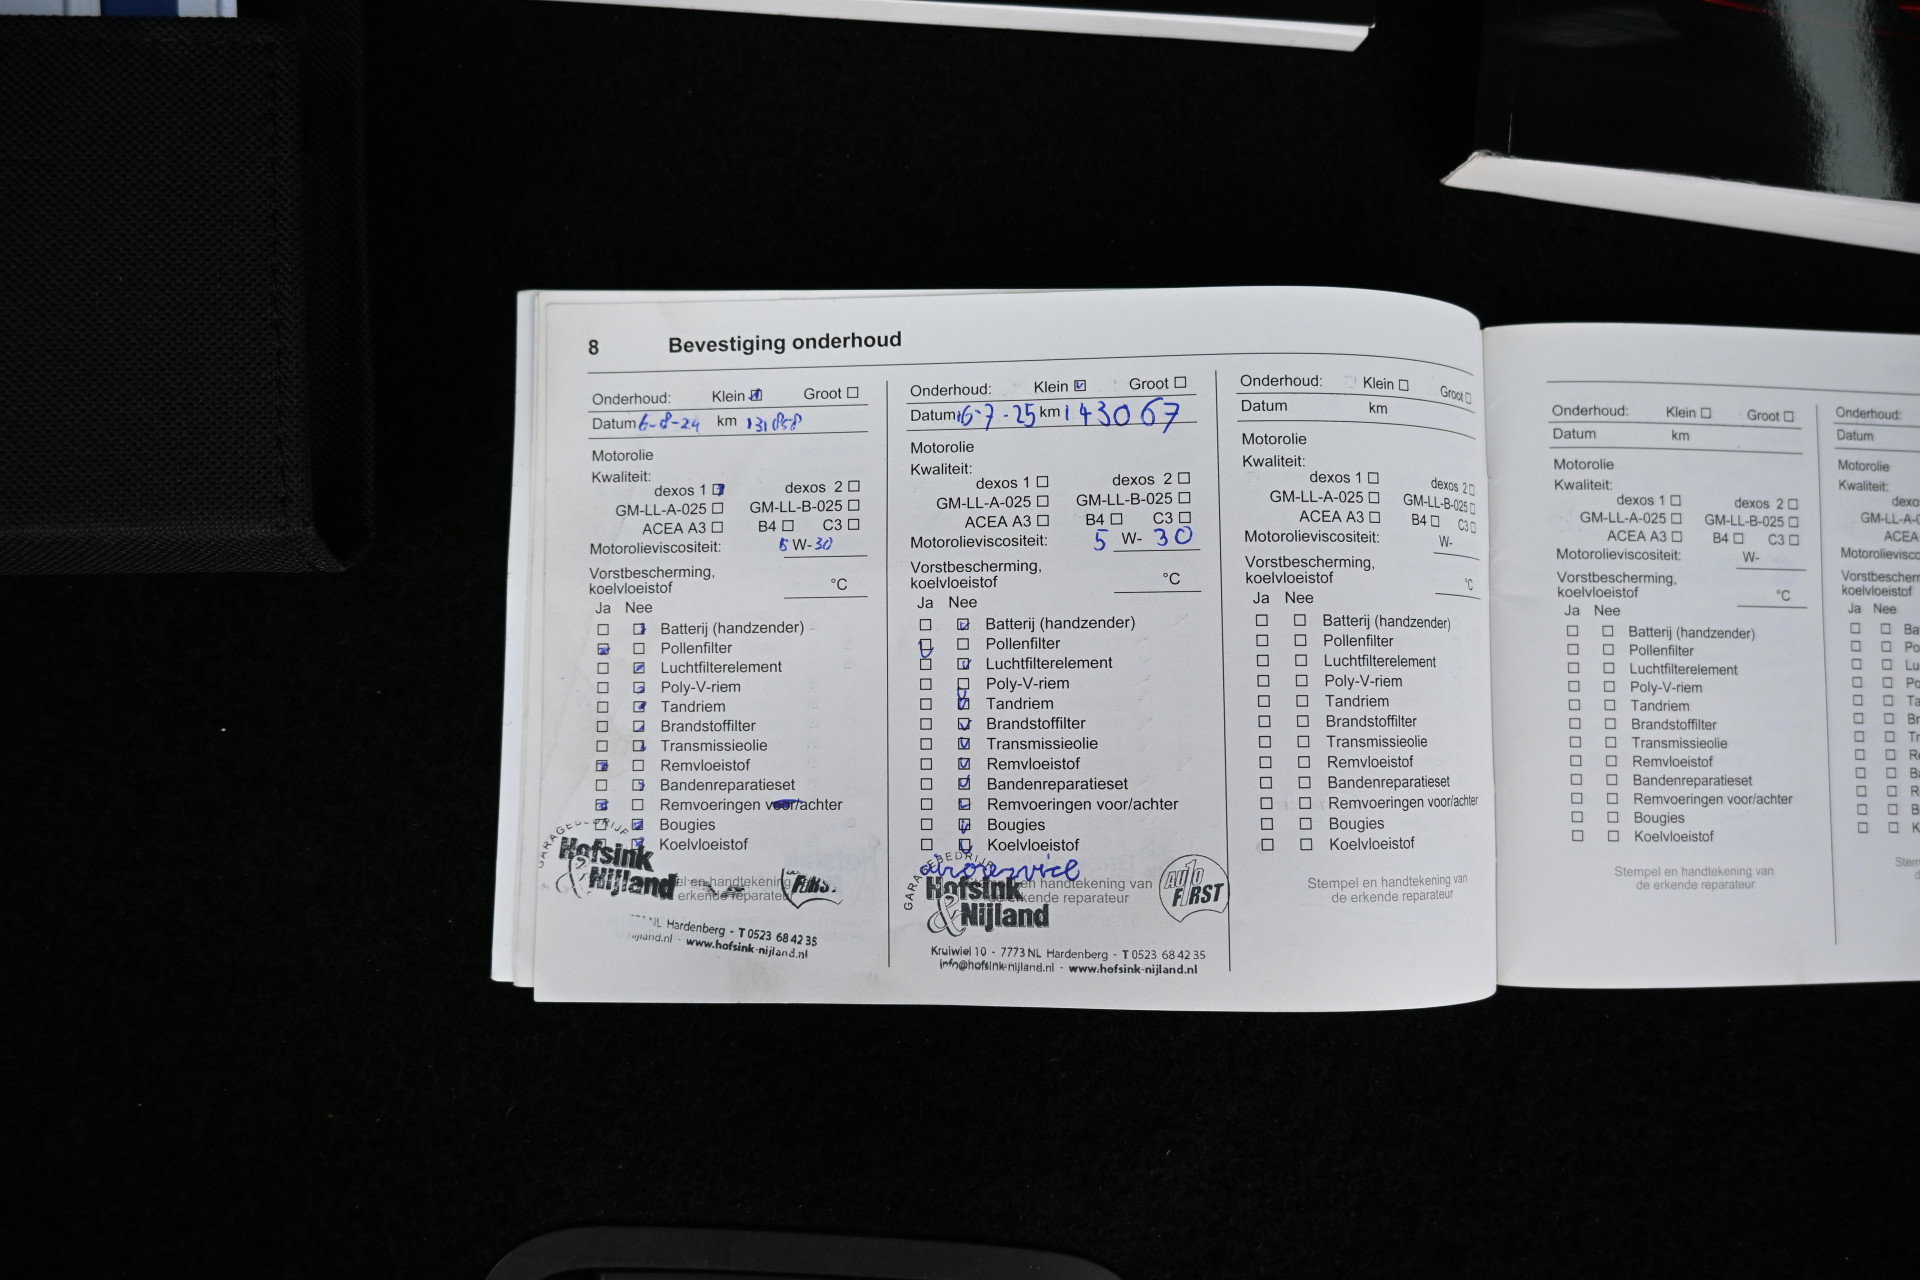 8 Bevestiging onderhoud
Onderhoud: Klein Groot
Datum 6-8-24 km 131858
Motorolie
Kwaliteit:
dexos 1 dexos 2
GM-LL-A-025 GM-LL-B-025
ACEA A3 B4 C3
Motorolieviscositeit: 5 W-30
Vorstbescherming,
koelvloeistof °C
Ja Nee
Batterij (handzender)
Pollenfilter
Luchtfilterelement
Poly-V-riem
Tandriem
Brandstoffilter
Transmissieolie
Remvloeistof
Bandenreparatieset
Remvoeringen voor/achter
Bougies
Koelvloeistof
GARAGEBEDRIJF
Hofsink
& Nijland
en handtekening
erkende reparateur
NL Hardenberg - T 0523 68 42 35
nijland.nl - www.hofsink-nijland.nl
Onderhoud: Klein Groot
Datum 16-7-25 km 143067
Motorolie
Kwaliteit:
dexos 1 dexos 2
GM-LL-A-025 GM-LL-B-025
ACEA A3 B4 C3
Motorolieviscositeit: 5 W- 30
Vorstbescherming,
koelvloeistof °C
Ja Nee
Batterij (handzender)
Pollenfilter
Luchtfilterelement
Poly-V-riem
Tandriem
Brandstoffilter
Transmissieolie
Remvloeistof
Bandenreparatieset
Remvoeringen voor/achter
Bougies
Koelvloeistof
GARAGEBEDRIJF
Hofsink
& Nijland
en handtekening van
erkende reparateur
Auto 1
FIRST
Kruiwiel 10 - 7773 NL Hardenberg - T 0523 68 42 35
info@hofsink-nijland.nl - www.hofsink-nijland.nl
Onderhoud: Klein Groot
Datum km
Motorolie
Kwaliteit:
dexos 1 dexos 2
GM-LL-A-025 GM-LL-B-025
ACEA A3 B4 C3
Motorolieviscositeit: W-
Vorstbescherming,
koelvloeistof °C
Ja Nee
Batterij (handzender)
Pollenfilter
Luchtfilterelement
Poly-V-riem
Tandriem
Brandstoffilter
Transmissieolie
Remvloeistof
Bandenreparatieset
Remvoeringen voor/achter
Bougies
Koelvloeistof
Stempel en handtekening van
de erkende reparateur
Onderhoud: Klein Groot
Datum km
Motorolie
Kwaliteit:
dexos 1 dexos 2
GM-LL-A-025 GM-LL-B-025
ACEA A3 B4 C3
Motorolieviscositeit: W-
Vorstbescherming,
koelvloeistof °C
Ja Nee
Batterij (handzender)
Pollenfilter
Luchtfilterelement
Poly-V-riem
Tandriem
Brandstoffilter
Transmissieolie
Remvloeistof
Bandenreparatieset
Remvoeringen voor/achter
Bougies
Koelvloeistof
Stempel en handtekening van
de erkende reparateur
Onderhoud:
Datum
Motorolie
Kwaliteit:
dexo
GM-LL-A-0
ACEA
Motorolievisco
Vorstbescherm
koelvloeistof
Ja Nee
Ba
Po
Lu
Po
Ta
Br
Tr
Re
Ba
R
B
K
Stem
d